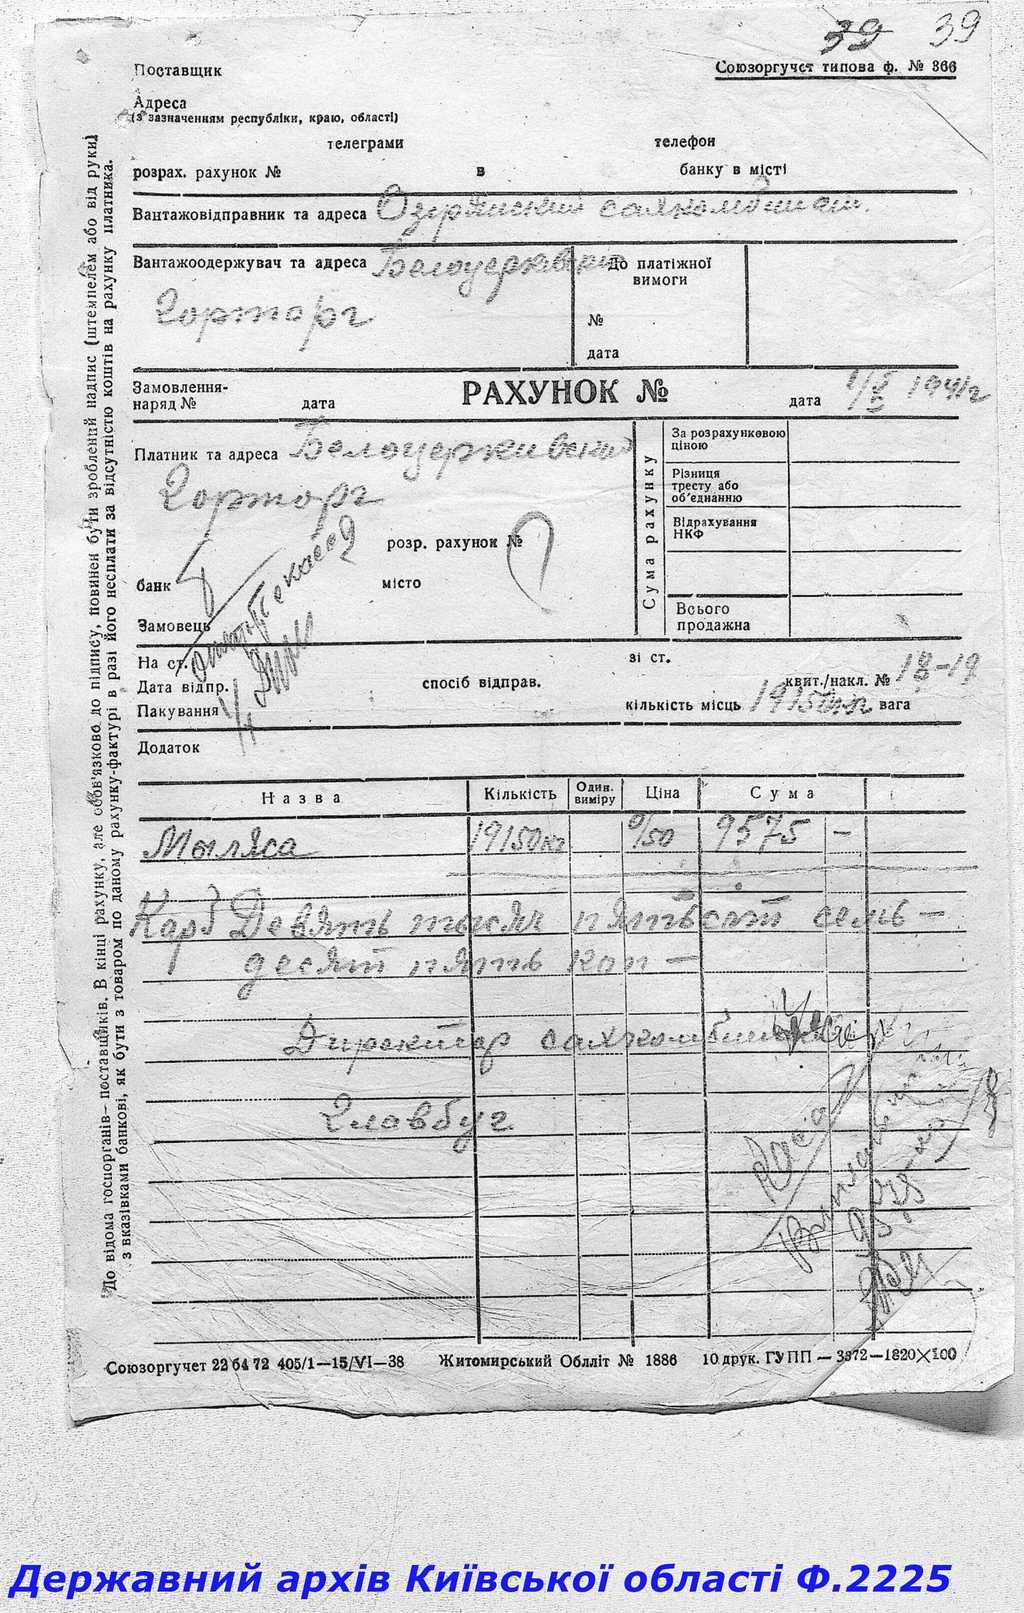 39 39
Поставщик
Союзоргучет типова ф. № 366
Адреса
(з зазначенням республіки, краю, області)
телеграми телефон
розрах. рахунок № в банку в місті
Вантажовідправник та адреса Озирянский сахкомбинат.
Вантажоодержувач та адреса Белоцерквский
До платіжної
вимоги
Горторг
№
дата
Замовлення-
наряд № дата РАХУНОК № дата 1941г
Платник та адреса Белоцеркивский
Горторг
розр. рахунок №
банк місто
Замовець
Сума рахунку
За розрахунковою
ціною
Різниця
тресту або
об'єднанню
Відрахування
НКФ
Всього
продажна
На ст. зі ст.
Дата відпр. спосіб відправ. квит./накл. № 18-19
Пакування кількість місць 19150кг вага
Додаток
Назва Кількість Один. виміру Ціна Сума
Мыляса 19150кг 0/50 9575 —
Карб Девять тысяч пятьсот семь-
десят пять коп —
Директор сахкомбината
Главбух
Касса
Выплатить
9575
Союзоргучет 22 64 72 405/1—15/VI—38 Житомирський Обліт № 1886 10 друк. ГУПП — 3372—1820×100
До відома госпорганів—поставщиків. В кінці рахунку, але обов'язково до підпису, повинен бути зроблений надпис (штемпелем або від руки)
з вказівками банкові, як бути з товаром по даному рахунку-фактурі в разі його несплати за відсутністю коштів на рахунку платника.
Державний архів Київської області Ф.2225